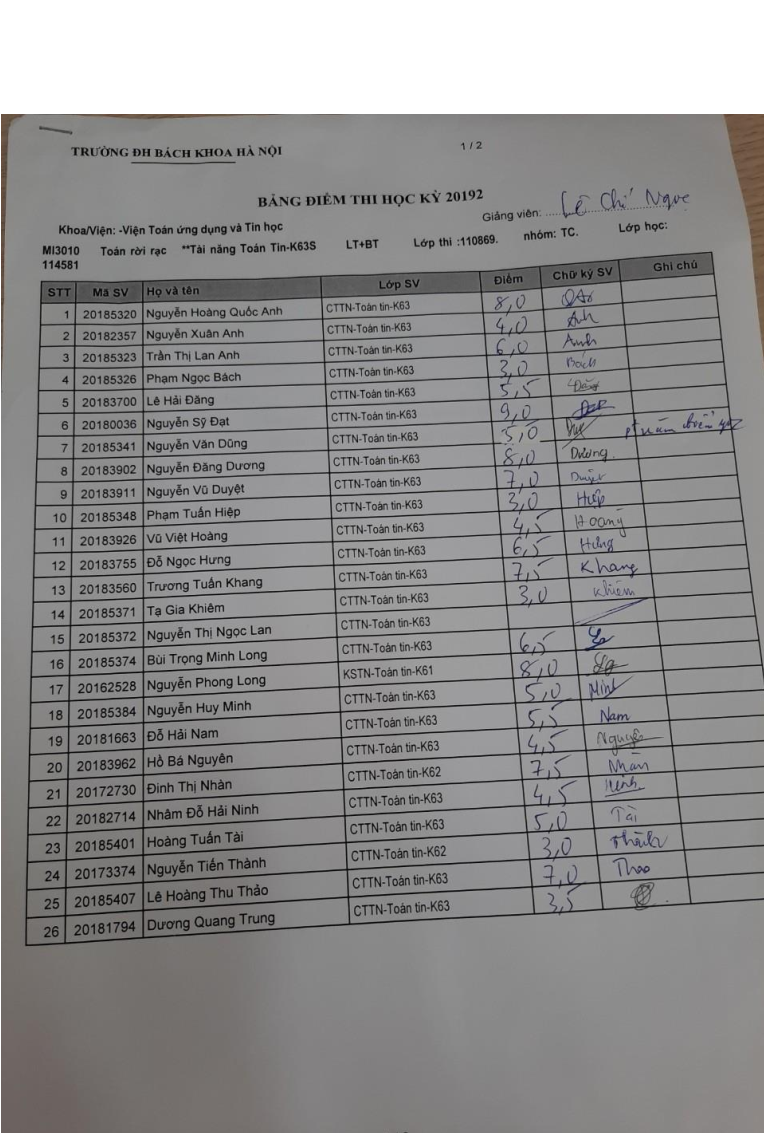 TRƯỜNG ĐH BÁCH KHOA HÀ NỘI
1 / 2
BẢNG ĐIỂM THI HỌC KỲ 20192
Giảng viên: Lê Chí Ngọc
Khoa/Viện: -Viện Toán ứng dụng và Tin học
MI3010 Toán rời rạc **Tài năng Toán Tin-K63S LT+BT Lớp thi :110869. nhóm: TC. Lớp học:
114581
STT Mã SV Họ và tên Lớp SV Điểm Chữ ký SV Ghi chú
1 20185320 Nguyễn Hoàng Quốc Anh CTTN-Toán tin-K63 8,0
2 20182357 Nguyễn Xuân Anh CTTN-Toán tin-K63 4,0 Anh
3 20185323 Trần Thị Lan Anh CTTN-Toán tin-K63 6,0 Anh
4 20185326 Phạm Ngọc Bách CTTN-Toán tin-K63 3,0 Bách
5 20183700 Lê Hải Đăng CTTN-Toán tin-K63 5,5 Đăng
6 20180036 Nguyễn Sỹ Đạt CTTN-Toán tin-K63 9,0
7 20185341 Nguyễn Văn Dũng CTTN-Toán tin-K63 5,0
8 20183902 Nguyễn Đăng Dương CTTN-Toán tin-K63 8,0 Dương
9 20183911 Nguyễn Vũ Duyệt CTTN-Toán tin-K63 7,0 Duyệt
10 20185348 Phạm Tuấn Hiệp CTTN-Toán tin-K63 3,0 Hiệp
11 20183926 Vũ Việt Hoàng CTTN-Toán tin-K63 4,5 Hoàng
12 20183755 Đỗ Ngọc Hưng CTTN-Toán tin-K63 6,5 Hưng
13 20183560 Trương Tuấn Khang CTTN-Toán tin-K63 7,5 Khang
14 20185371 Tạ Gia Khiêm CTTN-Toán tin-K63 3,0 Khiêm
15 20185372 Nguyễn Thị Ngọc Lan CTTN-Toán tin-K63
16 20185374 Bùi Trọng Minh Long CTTN-Toán tin-K63 6,5
17 20162528 Nguyễn Phong Long KSTN-Toán tin-K61 8,0
18 20185384 Nguyễn Huy Minh CTTN-Toán tin-K63 5,0 Minh
19 20181663 Đỗ Hải Nam CTTN-Toán tin-K63 5,5 Nam
20 20183962 Hồ Bá Nguyên CTTN-Toán tin-K63 4,5 Nguyên
21 20172730 Đinh Thị Nhàn CTTN-Toán tin-K62 7,5 Nhàn
22 20182714 Nhâm Đỗ Hải Ninh CTTN-Toán tin-K63 4,5 Ninh
23 20185401 Hoàng Tuấn Tài CTTN-Toán tin-K63 5,0 Tài
24 20173374 Nguyễn Tiến Thành CTTN-Toán tin-K62 3,0 Thành
25 20185407 Lê Hoàng Thu Thảo CTTN-Toán tin-K63 7,0 Thảo
26 20181794 Dương Quang Trung CTTN-Toán tin-K63 3,5